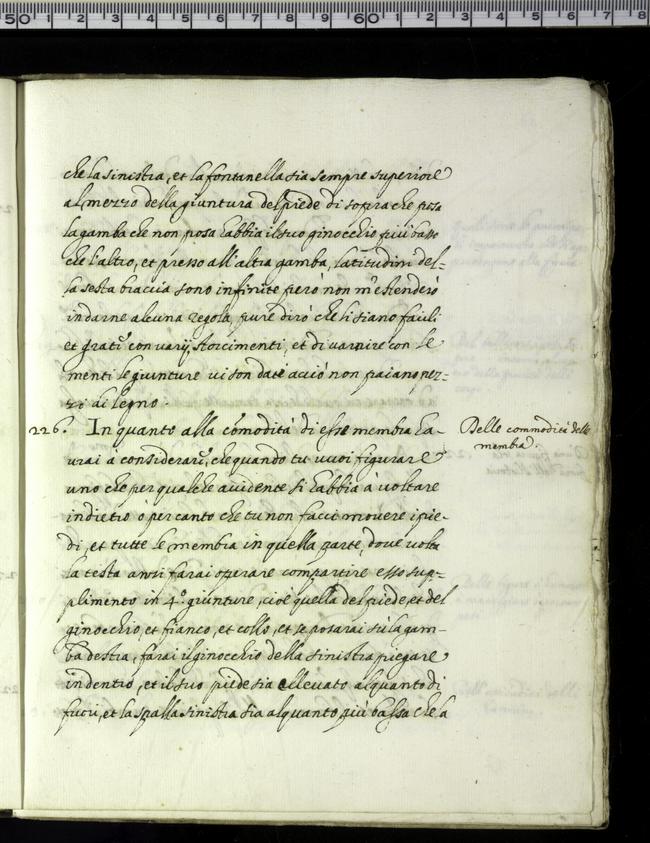 che la sinistra, et la fontanella sia sempre superiore
al mezzo della giuntura del piede di sopra che posa
la gamba che non posa habbia il suo ginocchio piu basso
che l'altro, et presso all'altra gamba, l'attitudini del-
la testa braccia sono infinite pero non m'estenderò
in darne alcuna regola, pure dirò che si siano facili
et grati con varij storcimenti, et di varnire con le
menti le giunture vi son date acciò non paiano pez-
zi di legno.
226. In quanto alla comodità di esse membra ha-
vrai à considerare, che quando tu vuoi figurare
uno che per qualche accidente si habbia à voltare
indietro ò per canto che tu non facci movere i pie-
di, et tutte le membra in quella parte, dove volta
la testa anzi farai operare compartire esso sup-
plimento in 4.º giunture, cioè quella del piede, et del
ginocchio, et fianco, et collo, et se posarai sù la gam-
ba destra, farai il ginocchio della sinistra piegare
indentro, et il suo piede sia ellevato alquanto di
fuori, et la spalla sinistra sia alquanto più bassa che la
Delle commodità delle
membra.